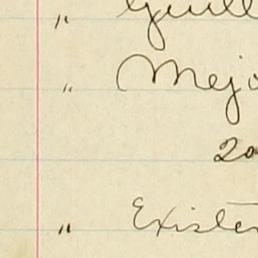 " Guill
" Mejo
20
" Existen